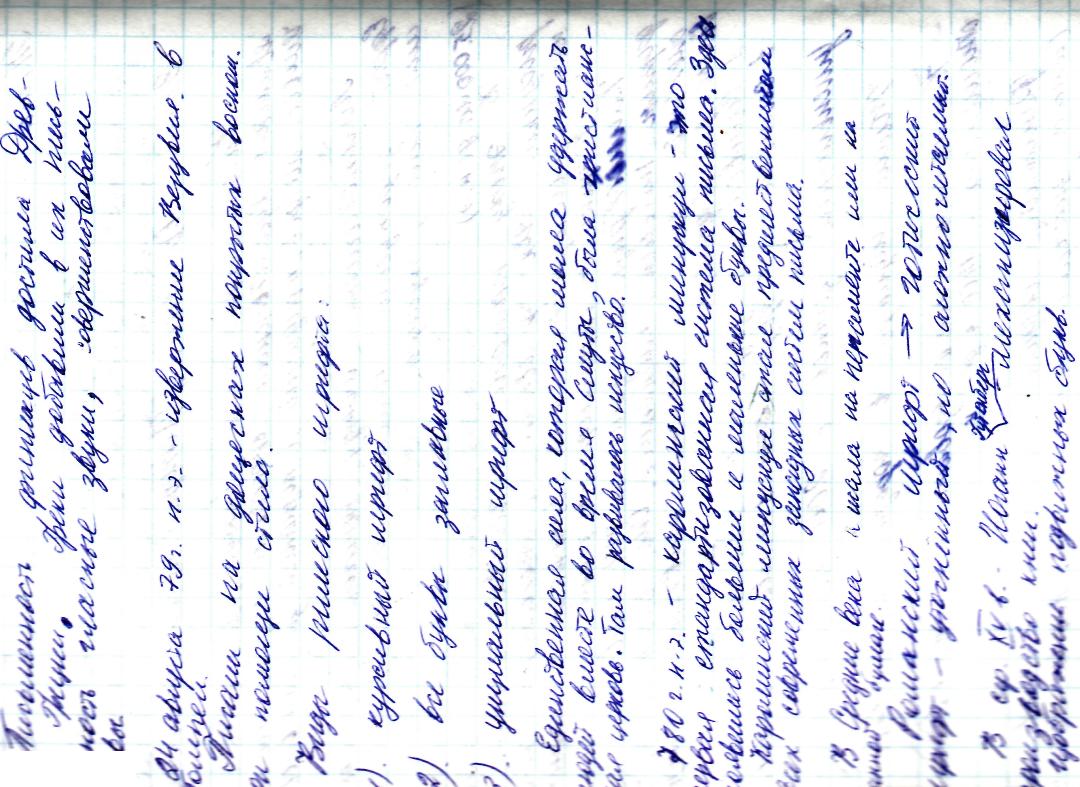 Письменность финикийцев достигла Древ-
Греции. Греки добавили в их пись-
ность гласные звуки, совершенствовали
вы.
24 августа 79 г. н.э. - извержение Везувия. в
Помпей.
Писали на дощечках покрытых воском.
ри помощи стила.
Виды римского шрифта:
1). курсивный шрифт
2). все буквы заглавные
3). унциальный шрифт
Единственная сила, которая могла удержать
людей вместе во время смуты, была христианс-
кая церковь. Там развивалось искусство.
780 г. н.э. - каролингский минускул - это
первая стандартизованная система письма. Здесь
появились большие и маленькие буквы.
Каролингский минускул стал предшественником
всех современных западных систем письма.
В Средние века писали на пергаменте или на
бумаге.
Романский шрифт → готический
шрифт - утонённый, но сложночитаемый.
В ср. XV в. Иоганн Гутенберг механизировал
производство книг.
изобретение подвижных букв.